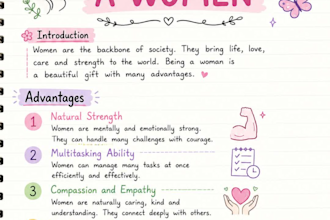 A WOMEN
Introduction
Women are the backbone of society. They bring life, love,
care and strength to the world. Being a woman is
a beautiful gift with many advantages.
Advantages
1 Natural Strength
Women are mentally and emotionally strong.
They can handle many challenges with courage.
2 Multitasking Ability
Women can manage many tasks at once
efficiently and effectively.
3 Compassion and Empathy
Women are naturally caring, kind and
understanding. They connect deeply with others.